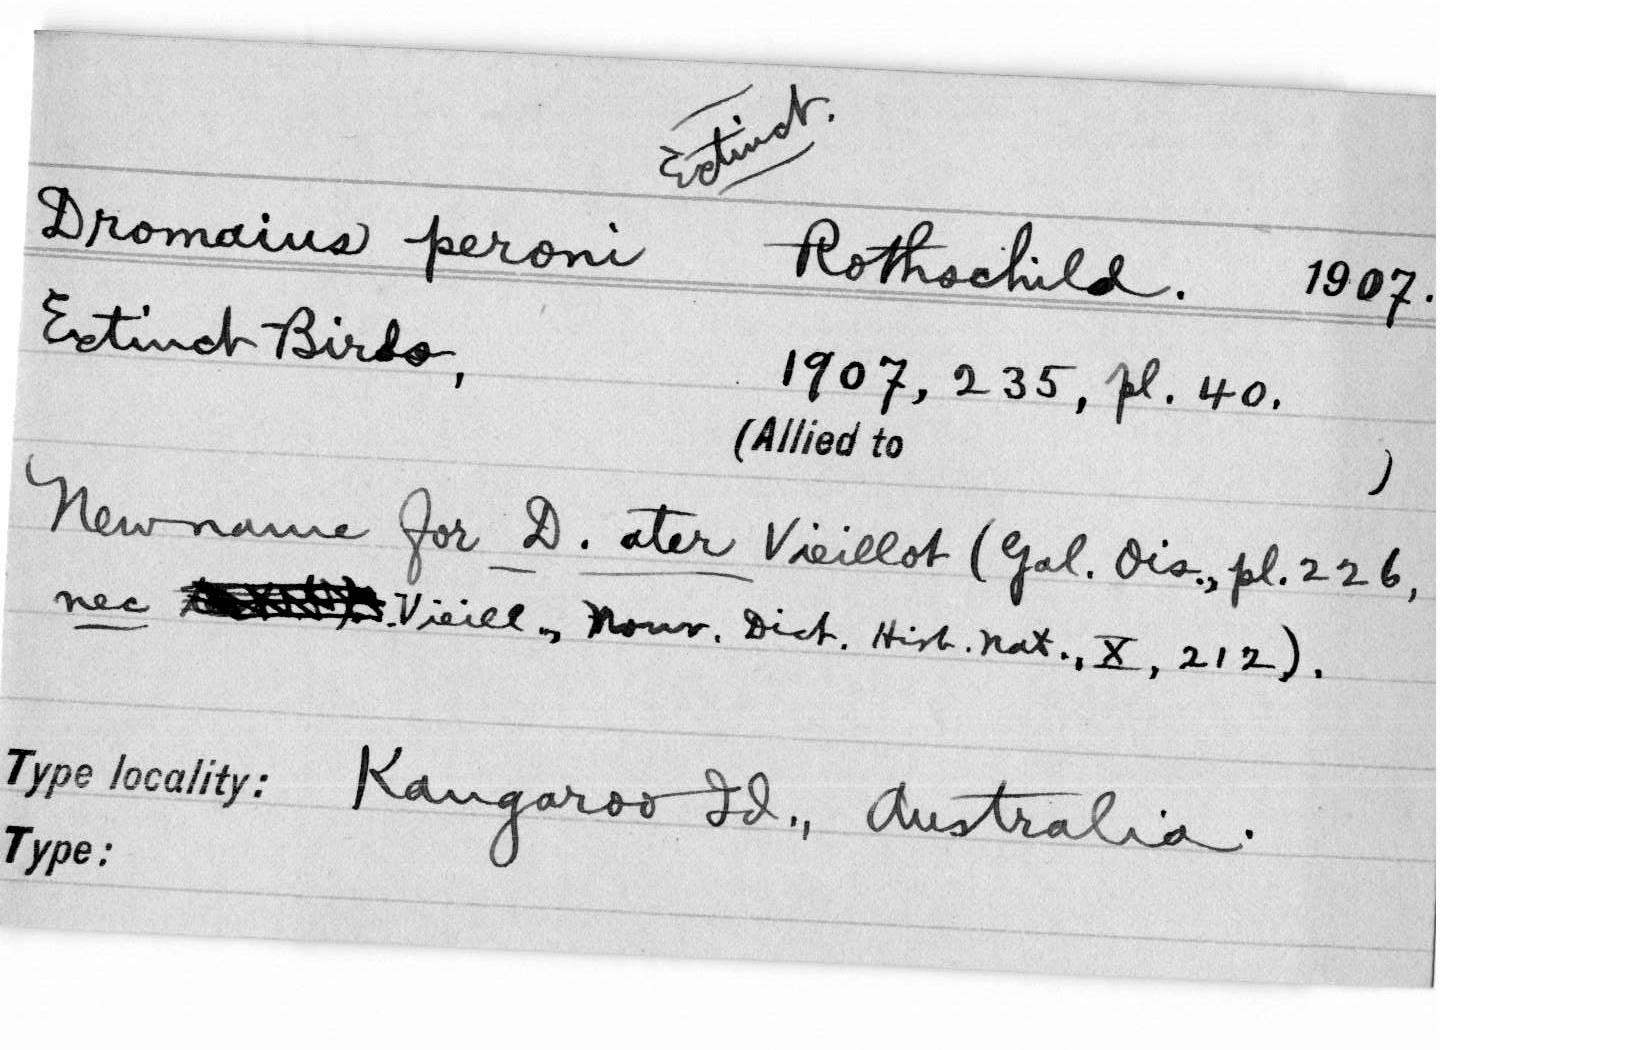 Extinct.
Dromaius peroni Rothschild. 1907.
Extinct Birds, 1907, 235, pl. 40.
(Allied to )
New name for D. ater Vieillot (Gal. Ois., pl. 226,
nec Vieill., Nouv. Dict. Hist. Nat., X, 212).
Type locality: Kangaroo Id., Australia.
Type: